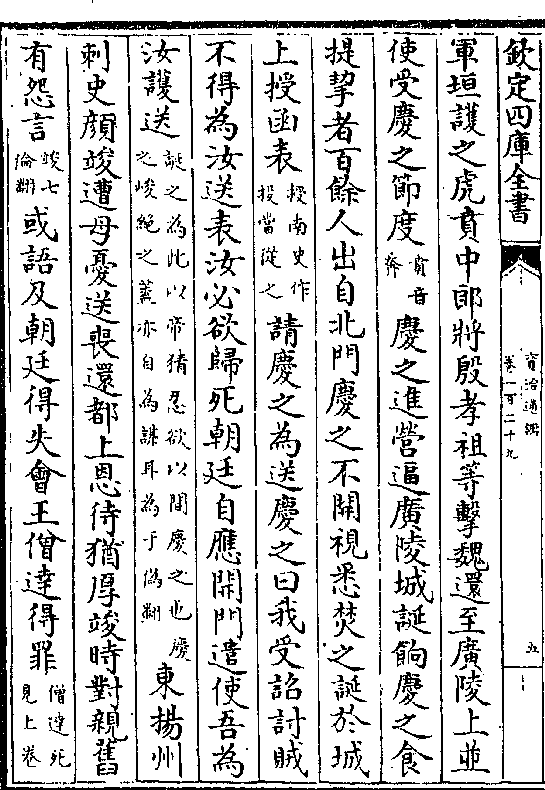 欽定四庫全書
資治通鑑
卷一百二十九
五
軍垣護之虎賁中郎將殷孝祖等擊魏還至廣陵上並
使受慶之節度賁音奔慶之進營逼廣陵城誕餉慶之食
提挈者百餘人出自北門慶之不開視悉焚之誕於城
上授函表授南史作投當從之請慶之為送慶之曰我受詔討賊
不得為汝送表汝必欲歸死朝廷自應開門遣使吾為
汝護送誕之為此以帝猜忍欲以間慶之也慶之峻絶之蓋亦自為謀耳為于偽翻東揚州
刺史顔竣遭母憂送喪還都上恩待猶厚竣時對親舊
有怨言竣七倫翻或語及朝廷得失會王僧達得罪僧達死見上卷